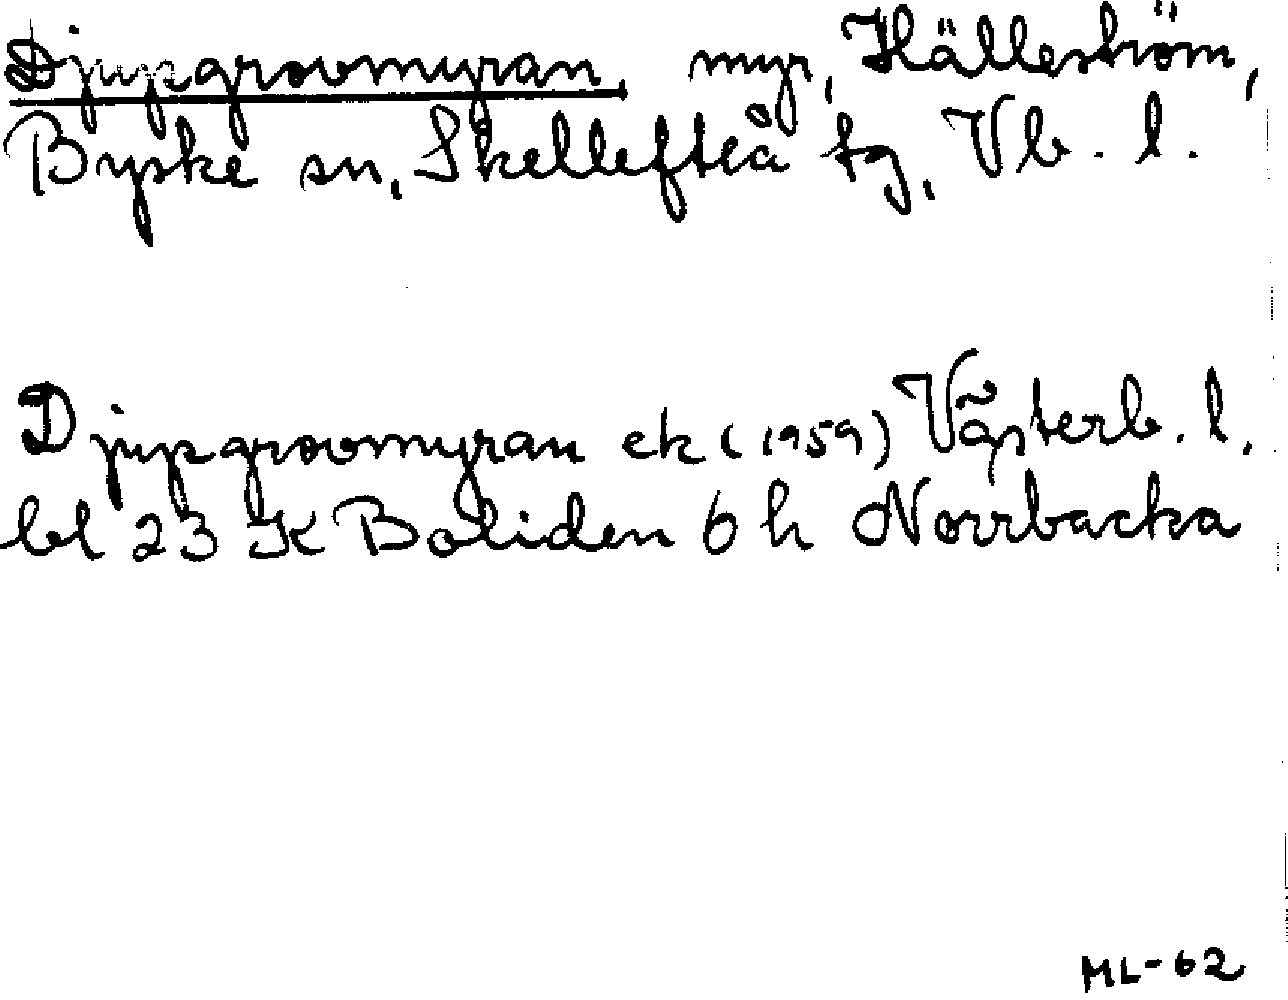 Djupgrovmyran, myr, Källeström,
Byske sn, Skellefteå tg, Vb. l.
Djupgrovmyran ek (1959) Västerb. l.
bl 23 K Boliden 6 h Norrbacka
ML-62